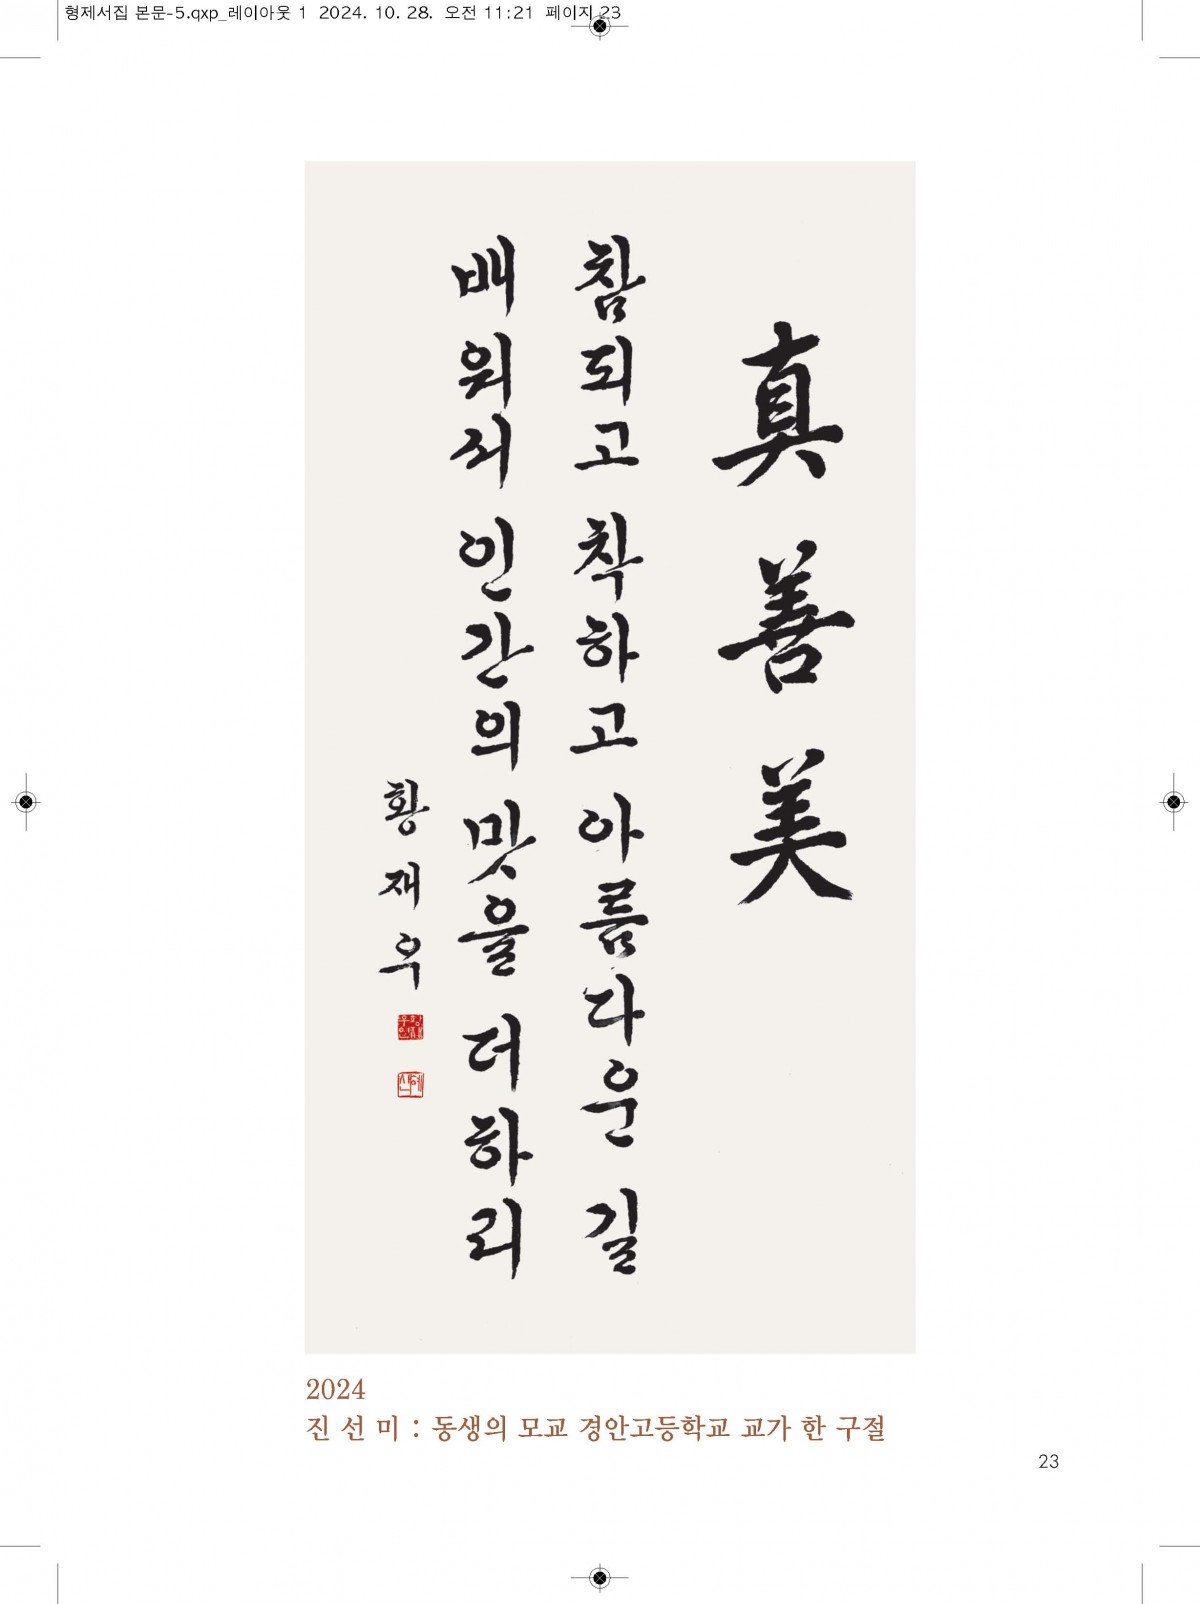 형제서집 본문-5.qxp_레이아웃 1 2024. 10. 28. 오전 11:21 페이지 23
真善美
참되고 착하고 아름다운 길
배워서 인간의 맛을 더하리
황재우
2024
진 선 미 : 동생의 모교 경안고등학교 교가 한 구절
23